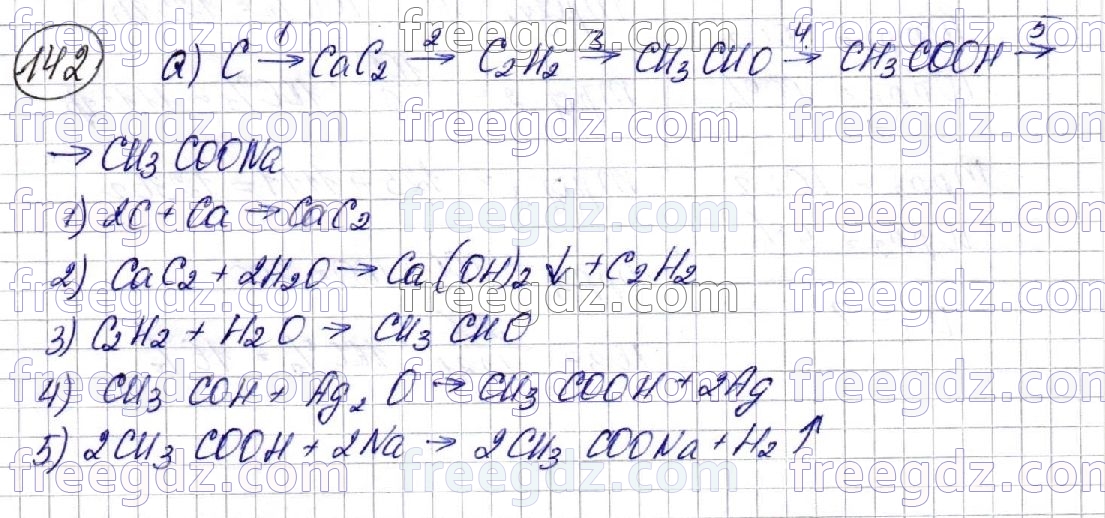 142 a) C 1→ CaC2 2→ C2H2 3→ CH3CHO 4→ CH3COOH 5→
→ CH3COONa
1) 2C + Ca → CaC2
2) CaC2 + 2H2O → Ca(OH)2↓ + C2H2
3) C2H2 + H2O → CH3CHO
4) CH3COH + Ag2O → CH3COOH + 2Ag
5) 2CH3COOH + 2Na → 2CH3COONa + H2↑
freegdz.com freegdz.com freegdz.com
freegdz.com freegdz.com freegdz.com
freegdz.com freegdz.com freegdz.com
freegdz.com freegdz.com freegdz.com
freegdz.com freegdz.com freegdz.com
freegdz.com freegdz.com freegdz.com